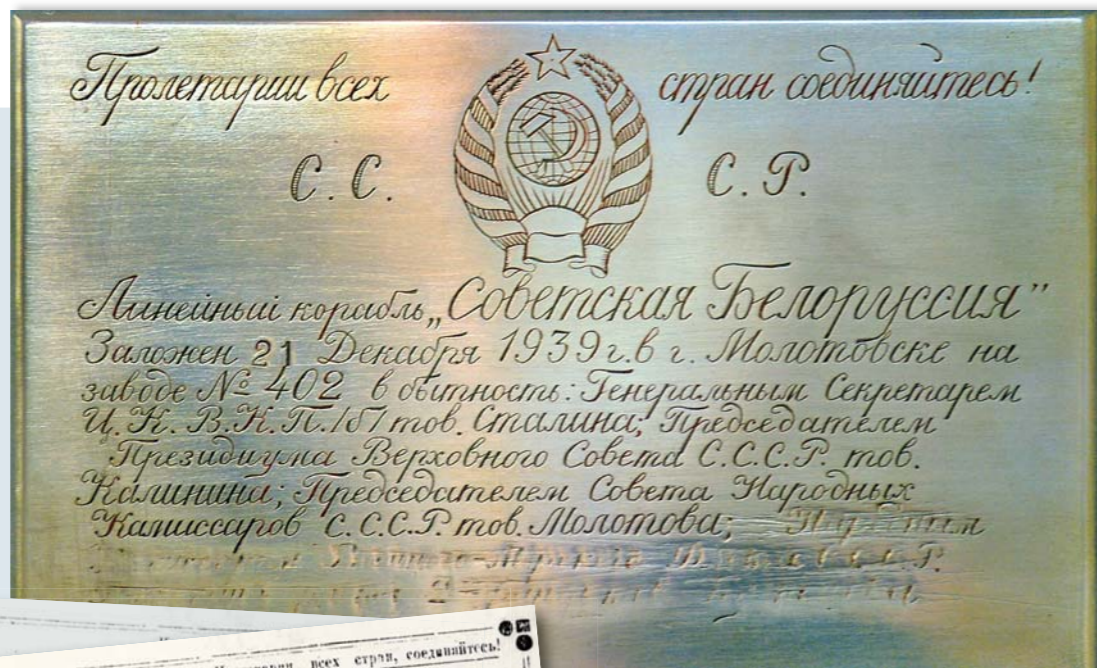 Пролетарии всех стран соединяйтесь!
С. С. С. Р.
Линейный корабль „Советская Белоруссия”
Заложен 21 Декабря 1939 г. в г. Молотовске на
заводе № 402 в бытность: Генеральным Секретарем
Ц. К. В. К. П. /б/ тов. Сталина; Председателем
Президиума Верховного Совета С. С. С. Р. тов.
Калинина; Председателем Совета Народных
Комиссаров С. С. С. Р. тов. Молотова;
всех стран, соединяйтесь!